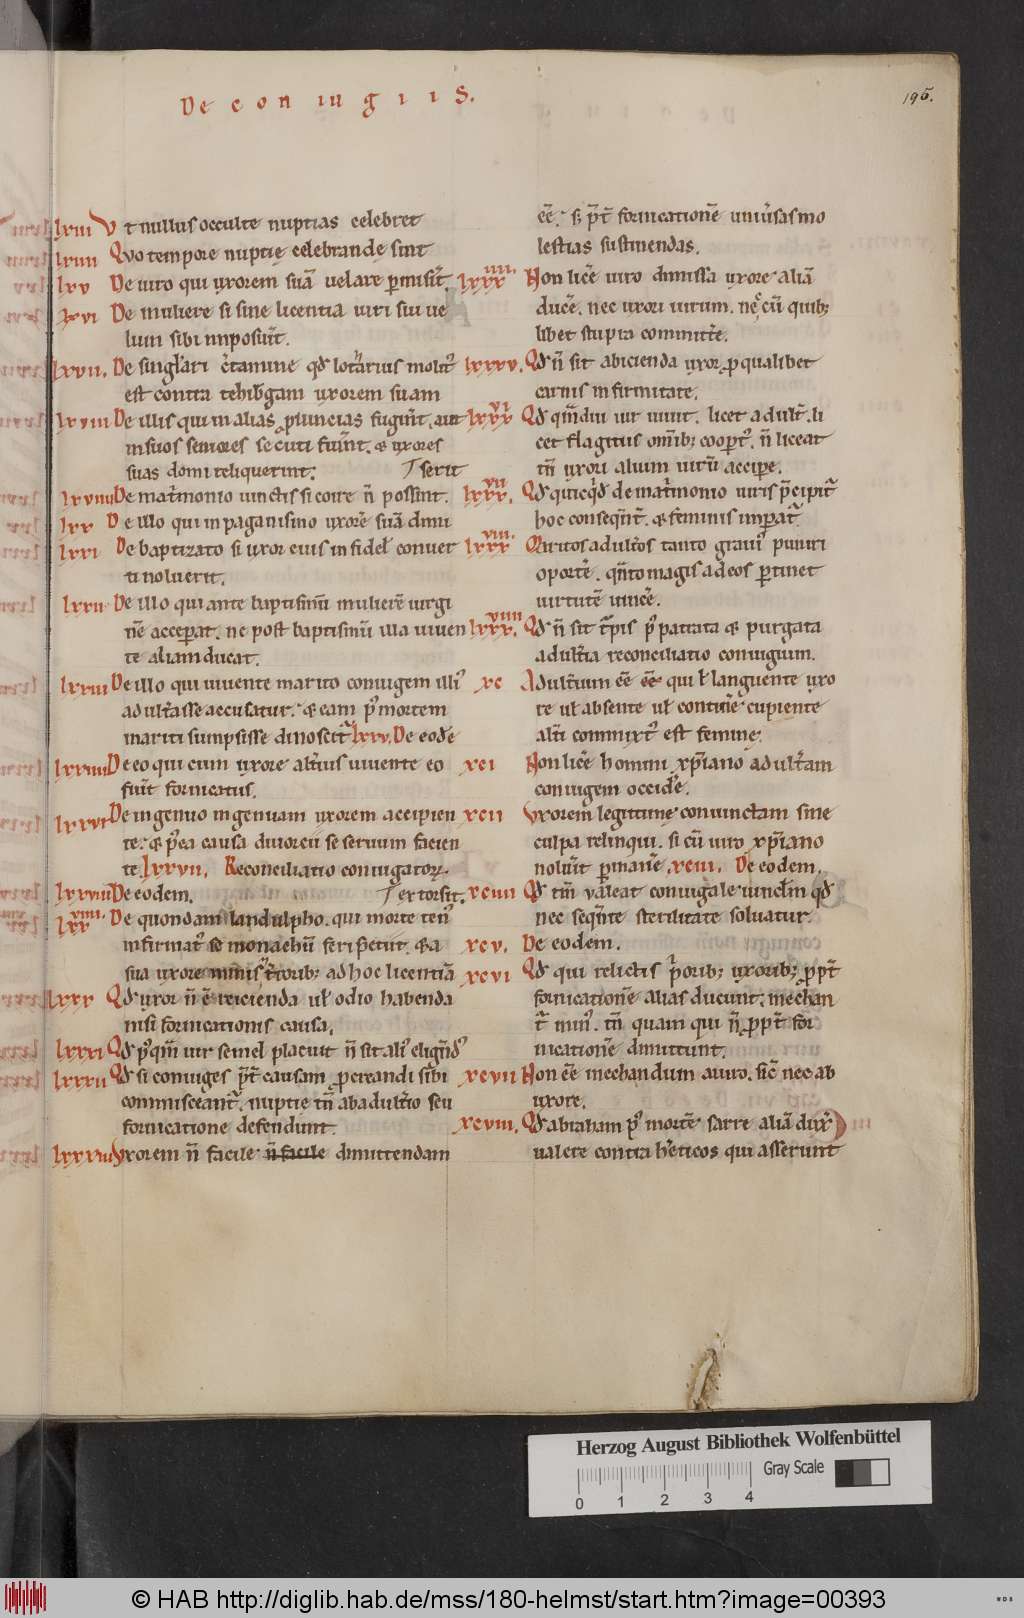 De coniugiis.
196.
lxiii Vt nullus occulte nuptias celebret
lxiiii Quo tempore nuptię celebrande sint
lxv De uiro qui uxorem suā uelare ꝑmisit̄.
lxvi De muliere si sine licentia uiri sui ue
lum sibi imposuit̄.
lxvii. De singlari c̄tamine qđ lotarius moluit᷒
est contra tehibgam uxorem suam
lxviii De illis qui in alias ꝓuincias fugiūt. aut
in suos seniores secuti fuīnt. & uxores
suas domi reliquerint: serit
lxviiii De mat̄monio iunctis si coire n̄ possint.
lxx De illo qui in paganismo uxorē suā dimi
lxxi De baptizato si uxor eius infidel̄ conuer
ti noluerit.
lxxii De illo qui ante baptismū mulierē uirgi
nē acceperat. ne post baptismū illa uiuen
te aliam ducat.
lxxiii De illo qui uiuente marito coniugem illi᷒
adult̄asse accusatur. & eam p᷒ mortem
mariti sumpsisse dinoscit̄ lxxv. De eodē
lxxiiii De eo qui cum uxore alt̄ius uiuente eo
fuit̄ fornicatus.
lxxvi De ingenuo ingenuam uxorem accipien
te. & p̄ea causa diuorcii se seruum facien
te lxxvii. Reconciliatio coniugatorꝝ.
lxxviii De eodem. extorsit.
lxxviiii De quondam landulpho. qui morte ten᷒
infirmat᷒ se monachū feri petiit. & a
sua uxore ministrorib; ad hoc licentiā
lxxx Qđ uxor n̄ ē reicienda ul̄ odio habenda
nisi fornicationis causa.
lxxxi Qđ p᷒qm̄ uir semel placuit n̄ sit ali᷒ elignđ᷒
lxxxii Qđ si coniuges p̄t̄ causam ꝓcreandi sibi
commisceant᷒. nuptie tn̄ ab adult̄io seu
fornicatione defendunt.
lxxxiii Vxorem n̄ facile n̄ facile dimittendam
eē. s; p̄t̄ fornicationē uniu͛sas mo
lestias sustinendas.
lxxxiiii. Non licē uiro dimissa uxore aliā
ducē. nec uxori uirum. neć cū quib;
libet stupra committe̅.
lxxxv. Qđ n̄ sit abicienda uxor ꝓ qualibet
carnis infirmitate.
lxxxvi Qđ qm̄diu uir uiuit. licet adult̄. li
cet flagitiis om̄ib; coopt᷒. n̄ liceat
tn̄ uxori alium uirū accipe.
lxxxvii. Qđ quicqđ de mat̄monio uiris p̄cipit᷒
hoc conseqn̄t. & feminis impat᷒
lxxxviii. Maritos adult̄os tanto graui᷒ puniri
oportē. qn̄to magis ad eos ꝑtinet
uirtutē uincē.
lxxxviiii. Qđ n̄ sit t̄pis p᷒ patrata & purgata
adult̄ia reconciliatio coniugium.
xc Adult̄ium eē qui ł languente uxo
re ul̄ absente ul̄ continē cupiente
alt̄i commixt᷒ est femine.
xci Non licē homini xp̄iano adult̄am
coniugem occidē.
xcii Vxorem legitime coniunctam sine
culpa relinqui. si cū uiro xp̄iano
noluit̄ ꝑmanē xciii. De eodem.
xciiii Qđ tm̄ ualeat coniugale uinclm̄ qđ
nec seqn̄te sterilitate soluatur
xcv. De eodem.
xcvi Qđ qui relictis p̄orib; uxorib; ꝓpt̄
fornicationē alias ducunt. mechan
t᷒ min᷒. tn̄ quam qui n̄ ꝓpt̄ for
nicationē dimittunt.
xcvii Non eē mechandum a uiro. sic̄ nec ab
uxore.
xcviii. Qđ abraham p᷒ mortē sarre aliā dux̄
ualere contra heticos qui asserunt
Herzog August Bibliothek Wolfenbüttel
Gray Scale
0 1 2 3 4
© HAB http://diglib.hab.de/mss/180-helmst/start.htm?image=00393